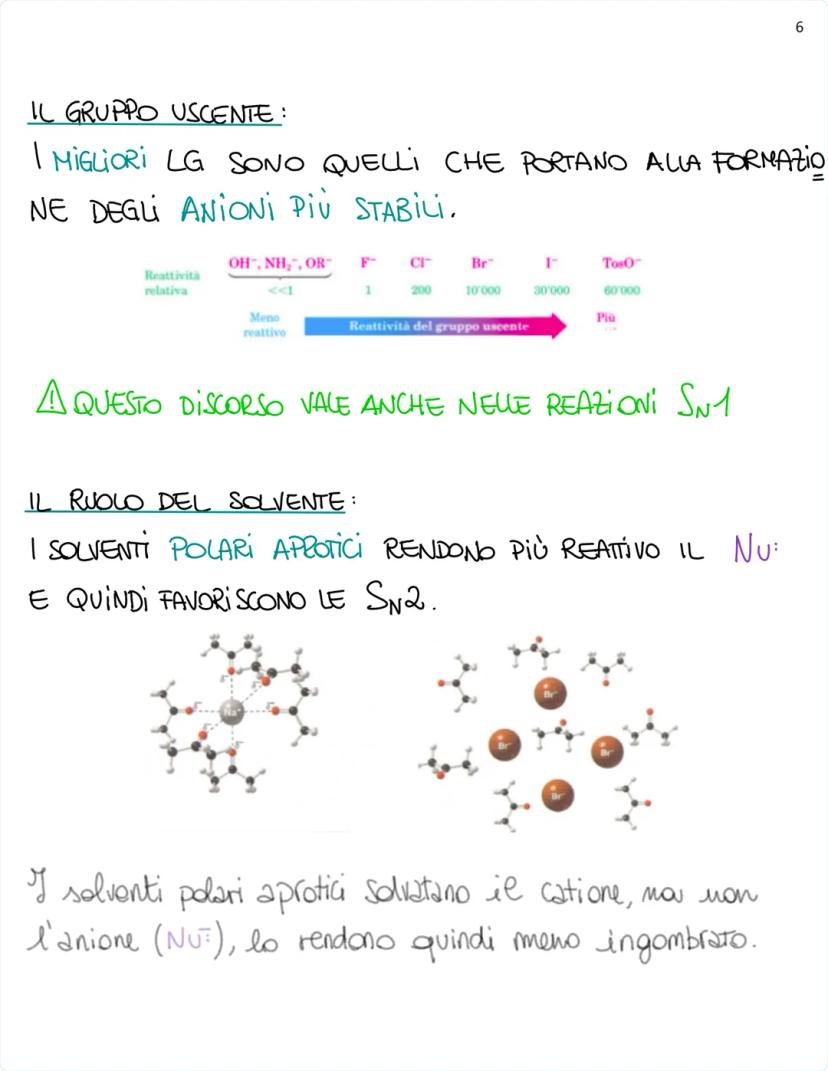 6
IL GRUPPO USCENTE:
I MIGLIORI LG SONO QUELLI CHE PORTANO ALLA FORMAZIO
NE DEGLI ANIONI PIÙ STABILI.
OH⁻, NH₂⁻, OR⁻ F⁻ Cl⁻ Br⁻ I⁻ TosO⁻
Reattività
relativa <<1 1 200 10'000 30'000 60'000
Meno
reattivo
Reattività del gruppo uscente
Più
⚠ QUESTO DISCORSO VALE ANCHE NELLE REAZIONI SN1
IL RUOLO DEL SOLVENTE:
I SOLVENTI POLARI APROTICI RENDONO PIÙ REATTIVO IL Nu:
E QUINDI FAVORISCONO LE SN2.
Na⁺
Br⁻
Br⁻
Br⁻
Br⁻
I solventi polari aprotici solvatano il catione, ma non
l'anione (Nu:⁻), lo rendono quindi meno ingombrato.